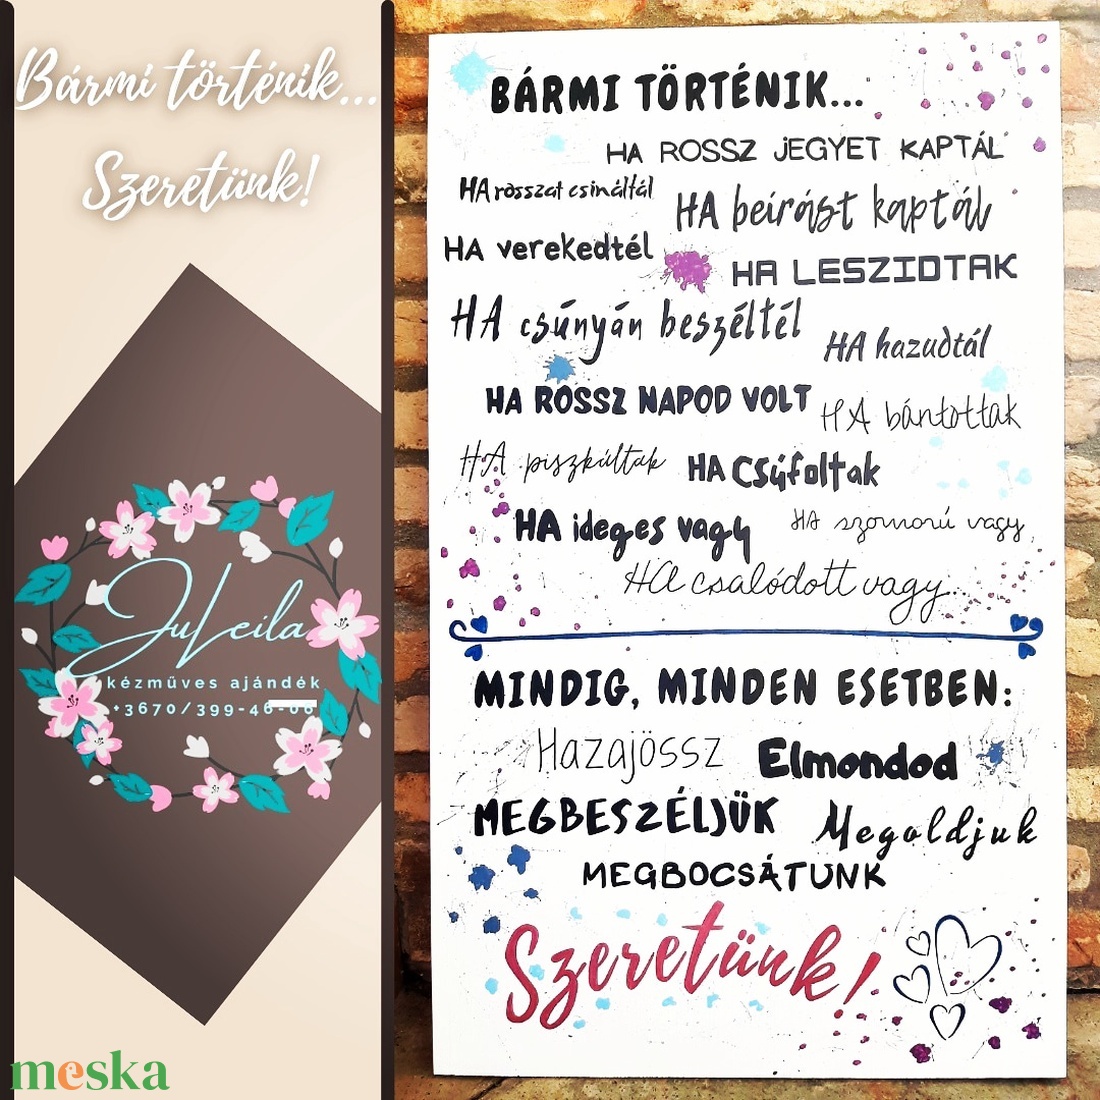 Bármi történik...
Szeretünk!
JuLeila
kézműves ajándék
+3670/399-46-06
meska
BÁRMI TÖRTÉNIK...
HA ROSSZ JEGYET KAPTÁL
HA rosszat csináltál
HA beírást kaptál
HA verekedtél
HA LESZIDTAK
HA csúnyán beszéltél
HA hazudtál
HA ROSSZ NAPOD VOLT
HA bántottak
HA piszkáltak
HA Csúfoltak
HA ideges vagy
HA szomorú vagy
HA csalódott vagy...
MINDIG, MINDEN ESETBEN:
Hazajössz
Elmondod
MEGBESZÉLJÜK
Megoldjuk
MEGBOCSÁTUNK
Szeretünk!